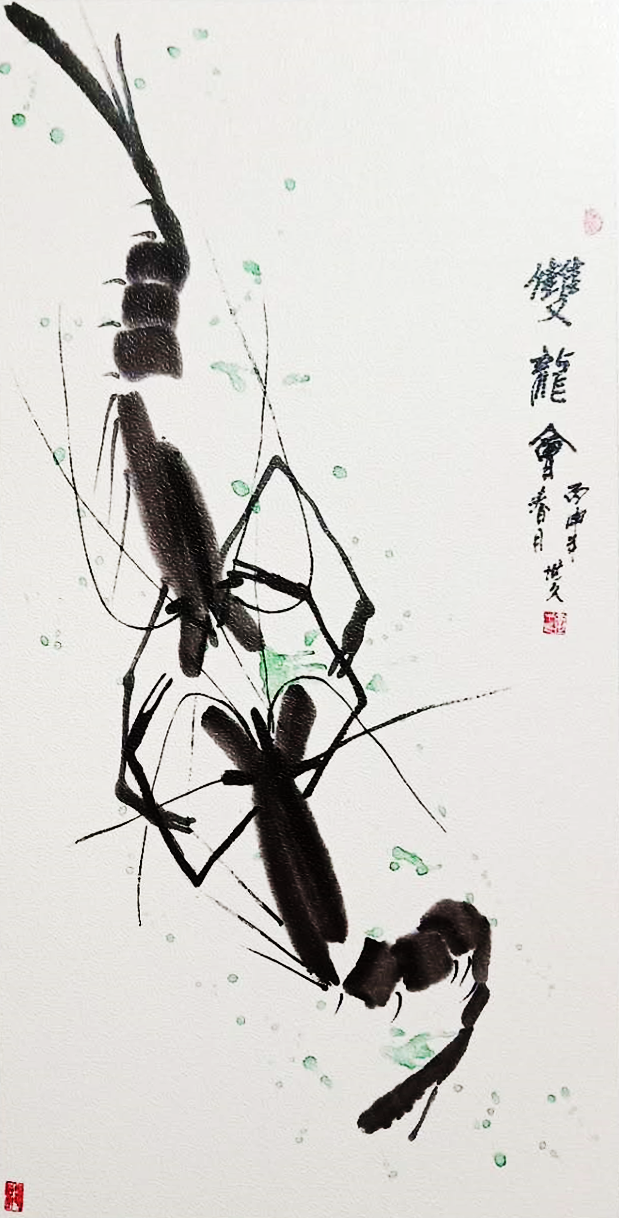 雙龍會
丙申年
春月
世久